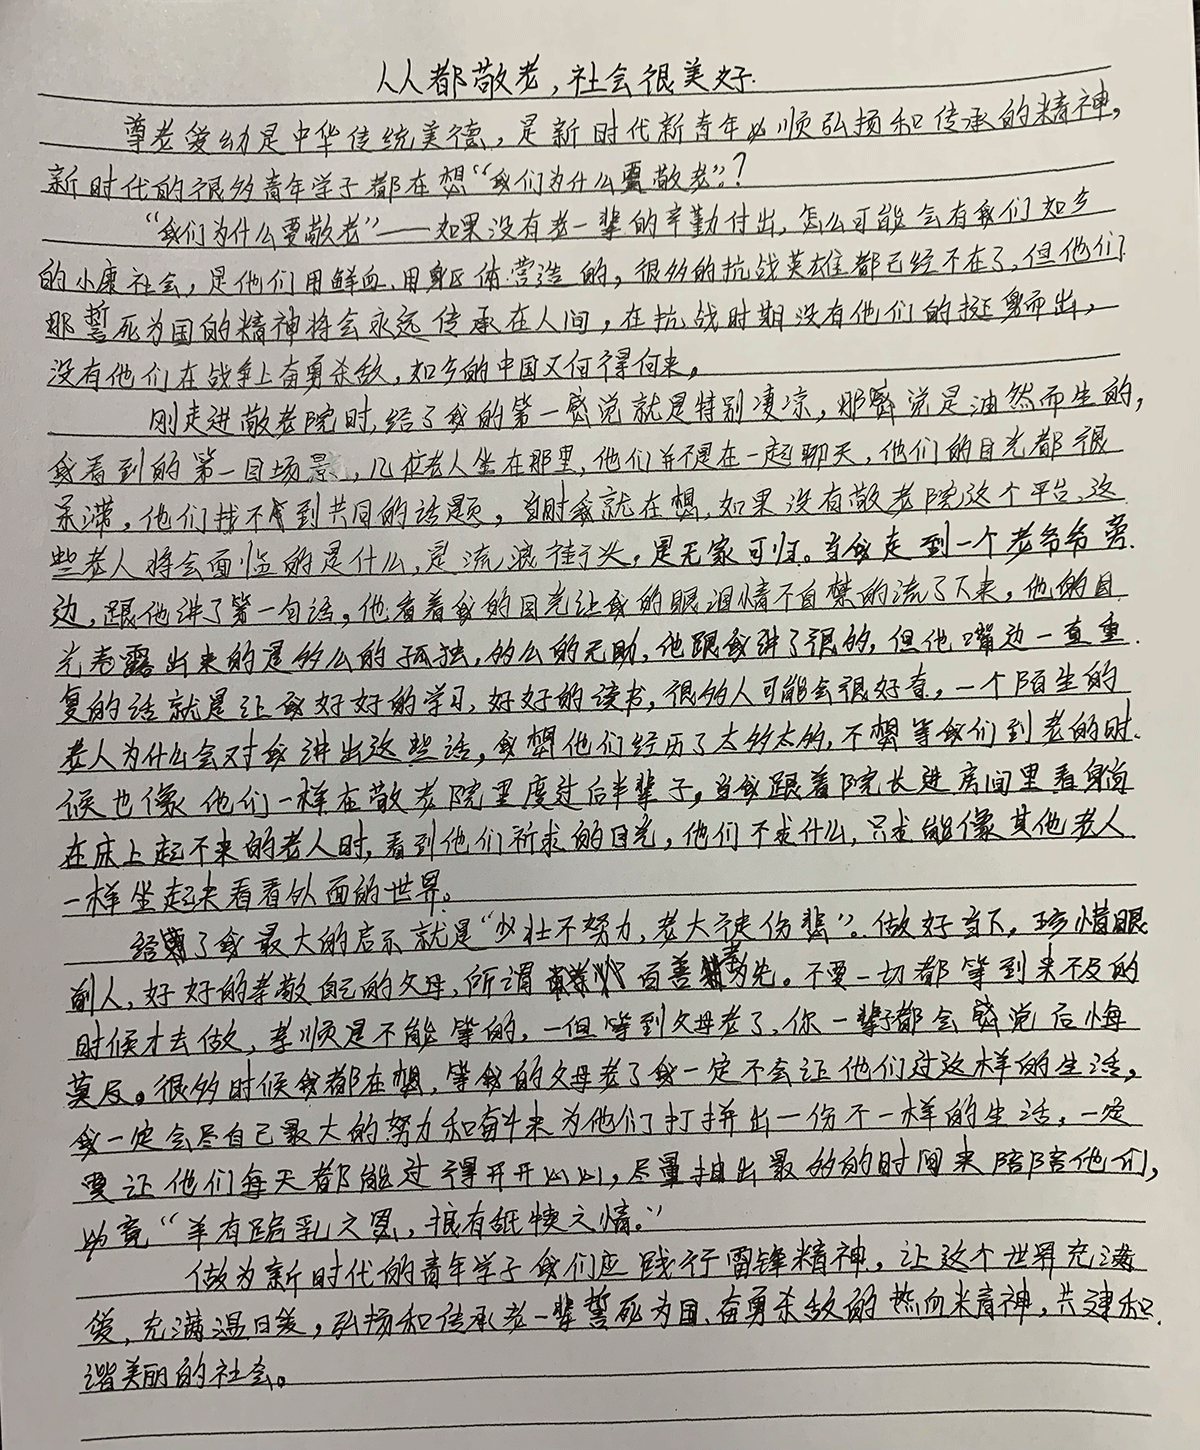 人人都敬老，社会很美好.
尊老爱幼是中华传统美德，是新时代新青年必须弘扬和传承的精神，
新时代的很多青年学子都在想“我们为什么要敬老”？
“我们为什么要敬老”——如果没有老一辈的辛勤付出，怎么可能会有我们如今
的小康社会，是他们用鲜血、用身躯体营造的，很多的抗战英雄都已经不在了，但他们
那誓死为国的精神将会永远传承在人间，在抗战时期没有他们的挺身而出，
没有他们在战争上奋勇杀敌，如今的中国又何得何来。
刚走进敬老院时，给了我的第一感觉就是特别凄凉，那感觉是油然而生的，
我看到的第一目场景，几位老人坐在那里，他们并不是在一起聊天，他们的目光都很
呆滞，他们找不到共同的话题，当时我就在想，如果没有敬老院这个平台，这
些老人将会面临的是什么，是流浪街头，是无家可归。当我走到一个老爷爷旁
边，跟他讲了第一句话，他看着我的目光让我的眼泪情不自禁的流了下来，他的目
光表露出来的是多么的孤独，多么的无助，他跟我讲了很多，但他嘴边一直重
复的话就是让我好好的学习，好好的读书，很多人可能会很好奇，一个陌生的
老人为什么会对我讲出这些话，我想他们经历了太多太多，不想等我们到老的时
候也像他们一样在敬老院里度过后半辈子，当我跟着院长进房间里看身向
在床上起不来的老人时，看到他们祈求的目光，他们不求什么，只求能像其他老人
一样坐起来看看外面的世界。
给了我最大的启示就是“少壮不努力，老大徒伤悲”。做好当下，珍惜眼
前人，好好的孝敬自己的父母，所谓百善孝为先。不要一切都等到来不及的
时候才去做，孝顺是不能等的，一但等到父母老了，你一辈子都会感觉后悔
莫及。很多时候我都在想，等我的父母老了我一定不会让他们过这样的生活，
我一定会尽自己最大的努力和奋斗来为他们打拼出一份不一样的生活，一定
要让他们每天都能过得开开心心，尽量抽出最多的时间来陪陪他们，
毕竟“羊有跪乳之恩，狼有舐犊之情。”
做为新时代的青年学子我们应践行雷锋精神，让这个世界充满
爱，充满温暖，弘扬和传承老一辈誓死为国、奋勇杀敌的热血精神，共建和
谐美丽的社会。